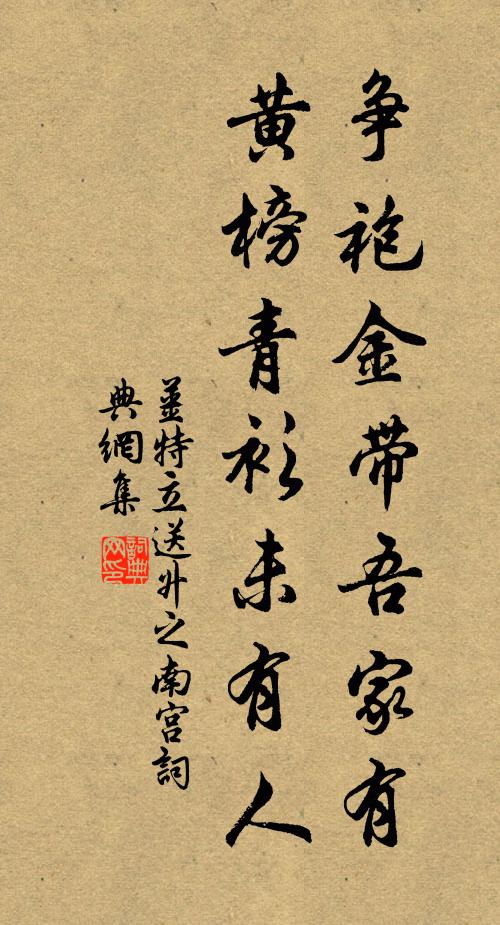 争袍金带吾家有
黄榜青衫未有人
姜特立送升之南宫詞
典網集
詞典网印